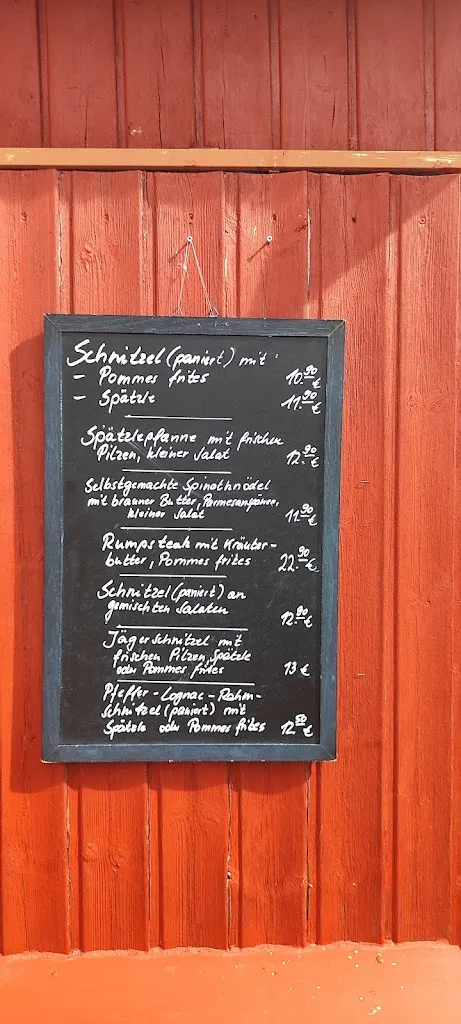 Schnitzel (paniert) mit
- Pommes frites 10.90 €
- Spätzle 11.90 €
Spätzlepfanne mit frischen
Pilzen, kleiner Salat 12.90 €
Selbstgemachte Spinatknödel
mit brauner Butter, Parmesanspäne,
kleiner Salat 11.90 €
Rumpsteak mit Kräuter-
butter, Pommes frites 22.90 €
Schnitzel (paniert) an
gemischten Salaten 12.90 €
Jägerschnitzel mit
frischen Pilzen, Spätzle
oder Pommes frites 13 €
Pfeffer-Cognac-Rahm-
schnitzel (paniert) mit
Spätzle oder Pommes frites 12. €